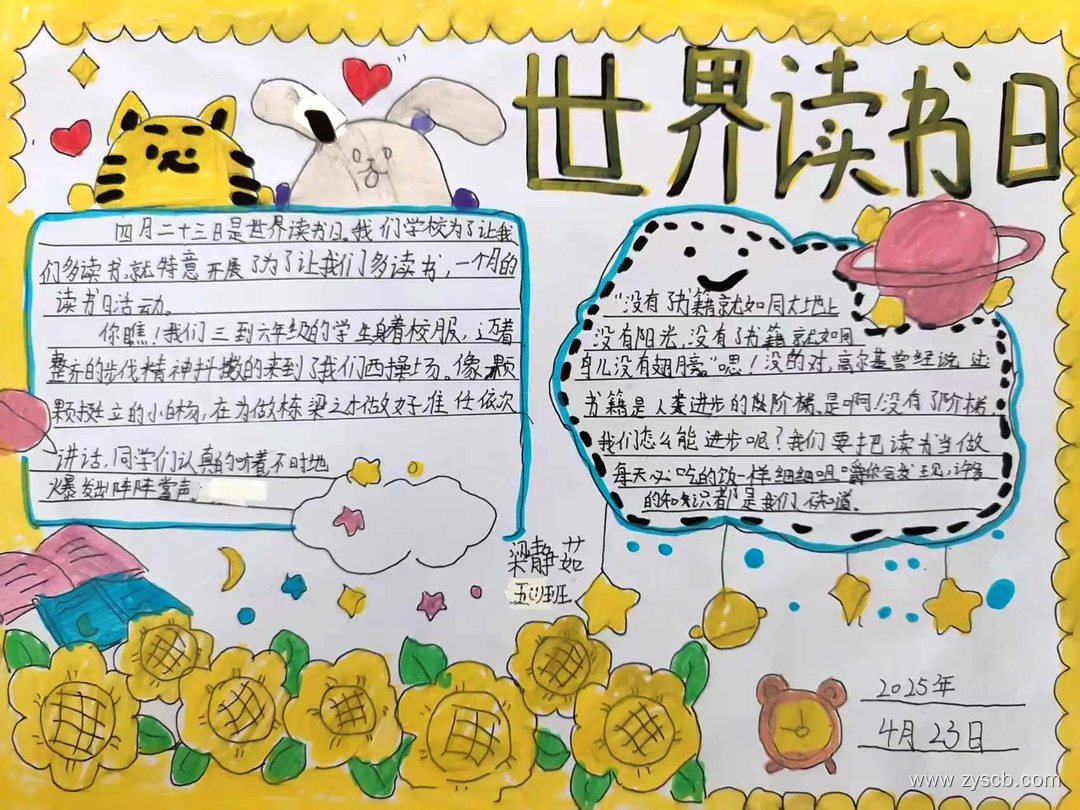 世界读书日
四月二十三日是世界读书日。我们学校为了让我
们多读书,就特意开展了为了让我们多读书,一个月的
读书日活动。
你瞧!我们三到六年级的学生身着校服,迈着
整齐的步伐精神抖擞的来到了我们西操场。像一颗
颗挺立的小白杨,在为做栋梁之才做好准 依次
讲话,同学们认真的听着不时地
爆发出阵阵掌声。
"没有书籍就如同大地上
没有阳光,没有了书籍就如同
鸟儿没有翅膀。"嗯!没的对,高尔基曾经说过
书籍是人类进步的阶梯、是啊!没有了阶梯
我们怎么能进步呢?我们要把读书当做
每天必吃的饭一样细细咀嚼你会发现,许多
的知识都是我们不知道。
梁静茹
班
2025年
4月23日
www.zyscb.com